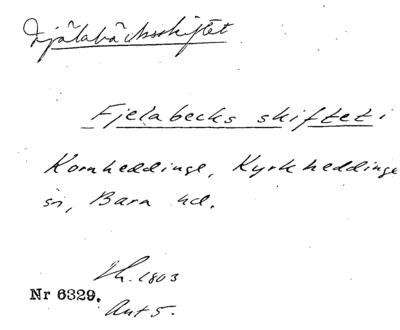 Fjälabäcksskiftet
Fjelabecks skiftet i
Kornheddinge, Kyrkheddinge
sn, Bara hd.
Nr 6329.
1803
Ant 5.